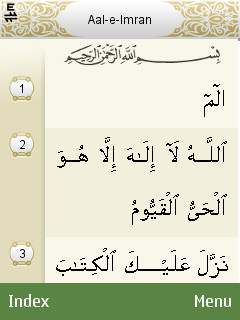 Aal-e-Imran
بِسْمِ ٱللَّهِ ٱلرَّحْمَٰنِ ٱلرَّحِيمِ
1
الٓمٓ
2
ٱللَّهُ لَآ إِلَٰهَ إِلَّا هُوَ
ٱلْحَىُّ ٱلْقَيُّومُ
3
نَزَّلَ عَلَيْكَ ٱلْكِتَٰبَ
Index Menu